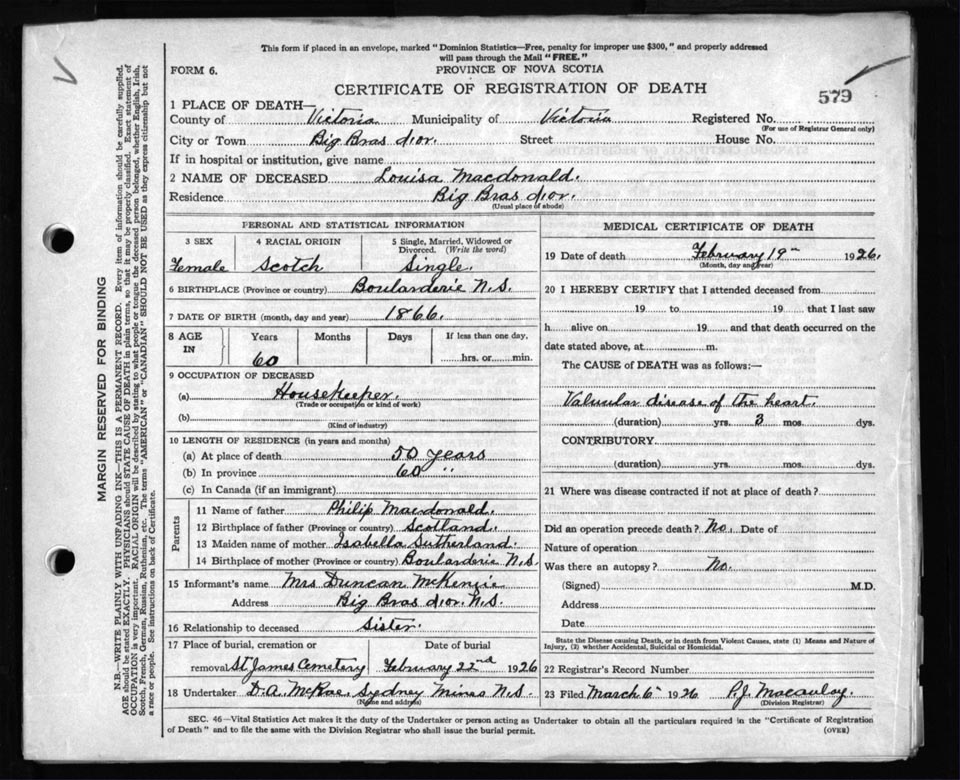 This form if placed in an envelope, marked "Dominion Statistics—Free, penalty for improper use $300," and properly addressed
will pass through the Mail "FREE."
FORM 6.
PROVINCE OF NOVA SCOTIA
CERTIFICATE OF REGISTRATION OF DEATH
579
1 PLACE OF DEATH—
County of Victoria Municipality of Victoria Registered No.
(For use of Registrar General only)
City or Town Big Bras d'or. Street House No.
If in hospital or institution, give name
2 NAME OF DECEASED Louisa Macdonald.
Residence Big Bras d'or.
(Usual place of abode)
PERSONAL AND STATISTICAL INFORMATION
3 SEX 4 RACIAL ORIGIN 5 Single, Married, Widowed or Divorced. (Write the word)
Female Scotch Single.
6 BIRTHPLACE (Province or country) Boularderie N.S.
7 DATE OF BIRTH (month, day and year) 1866.
8 AGE IN Years Months Days If less than one day,
60 hrs. or min.
9 OCCUPATION OF DECEASED
(a) Housekeeper.
(Trade or occupation or kind of work)
(b)
(Kind of industry)
10 LENGTH OF RESIDENCE (in years and months)
(a) At place of death 50 years
(b) In province 60 "
(c) In Canada (if an immigrant)
Parents
11 Name of father Philip Macdonald.
12 Birthplace of father (Province or country) Scotland.
13 Maiden name of mother Isabella Sutherland.
14 Birthplace of mother (Province or country) Boularderie N.S.
15 Informant's name Mrs Duncan McKenzie
Address Big Bras d'or. N.S.
16 Relationship to deceased Sister.
17 Place of burial, cremation or Date of burial
removal St James Cemetery February 22nd 1926
18 Undertaker D.A. McRae, Sydney Mines N.S.
(Name and address)
MEDICAL CERTIFICATE OF DEATH
19 Date of death February 19th 1926.
(Month, day and year)
20 I HEREBY CERTIFY that I attended deceased from
19 to 19 that I last saw
h alive on 19 and that death occurred on
date stated above, at m.
The CAUSE of DEATH was as follows:—
Valvular disease of the heart.
(duration) yrs. 3 mos. dys.
CONTRIBUTORY
(duration) yrs. mos. dys.
21 Where was disease contracted if not at place of death?
Did an operation precede death? No. Date of
Nature of operation
Was there an autopsy? No.
(Signed) M.D.
Address
Date
State the Disease causing Death, or in death from Violent Causes, state (1) Means and Nature of
Injury, (2) whether Accidental, Suicidal or Homicidal.
22 Registrar's Record Number
23 Filed March 6th 1926 P.J. Macaulay.
(Division Registrar)
SEC. 46—Vital Statistics Act makes it the duty of the Undertaker or person acting as Undertaker to obtain all the particulars required in the "Certificate of Registration
of Death" and to file the same with the Division Registrar who shall issue the burial permit.
(OVER)
MARGIN RESERVED FOR BINDING
N.B.—WRITE PLAINLY WITH UNFADING INK—THIS IS A PERMANENT RECORD. Every item of information should be carefully supplied.
AGE should be stated EXACTLY. PHYSICIANS should STATE CAUSE OF DEATH in plain terms, so that it may be properly classified. Exact statement of
OCCUPATION is very important. RACIAL ORIGIN will be described by stating to what people or tongue the deceased person belonged, whether English, Irish,
Scotch, French, German, Russian, Ruthenian, etc. The terms "AMERICAN" or "CANADIAN" SHOULD NOT BE USED as they express citizenship but not
a race or people. See instructions on back of Certificate.